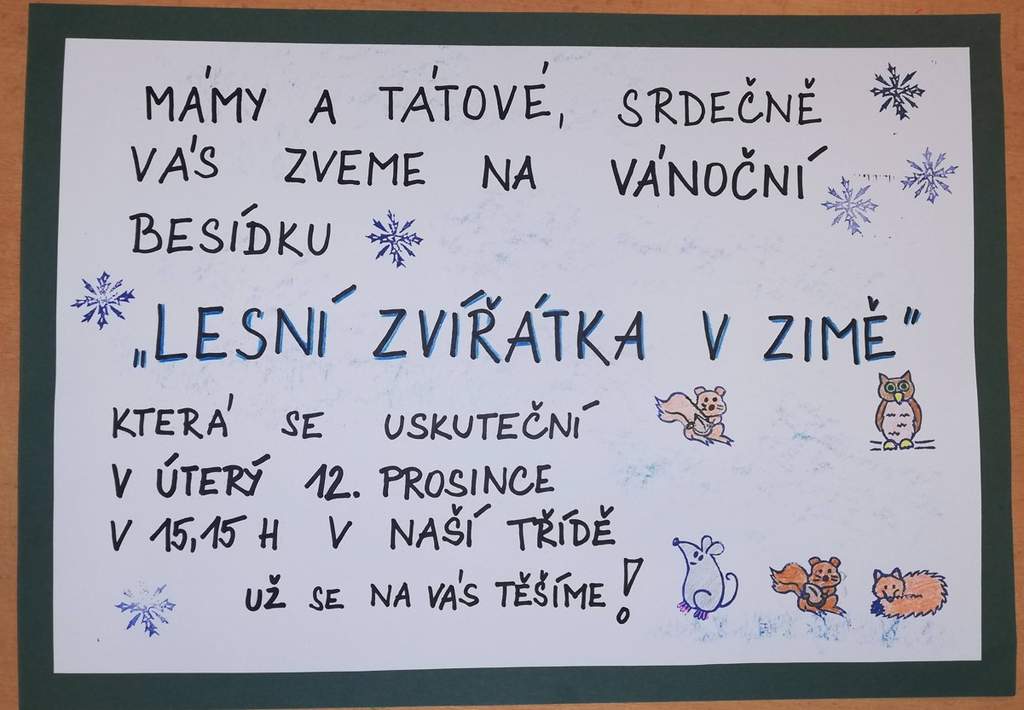 MÁMY A TÁTOVÉ, SRDEČNĚ
VÁS ZVEME NA VÁNOČNÍ
BESÍDKU
„LESNÍ ZVÍŘÁTKA V ZIMĚ"
KTERÁ SE USKUTEČNÍ
V ÚTERÝ 12. PROSINCE
V 15,15 H V NAŠÍ TŘÍDĚ
UŽ SE NA VÁS TĚŠÍME!